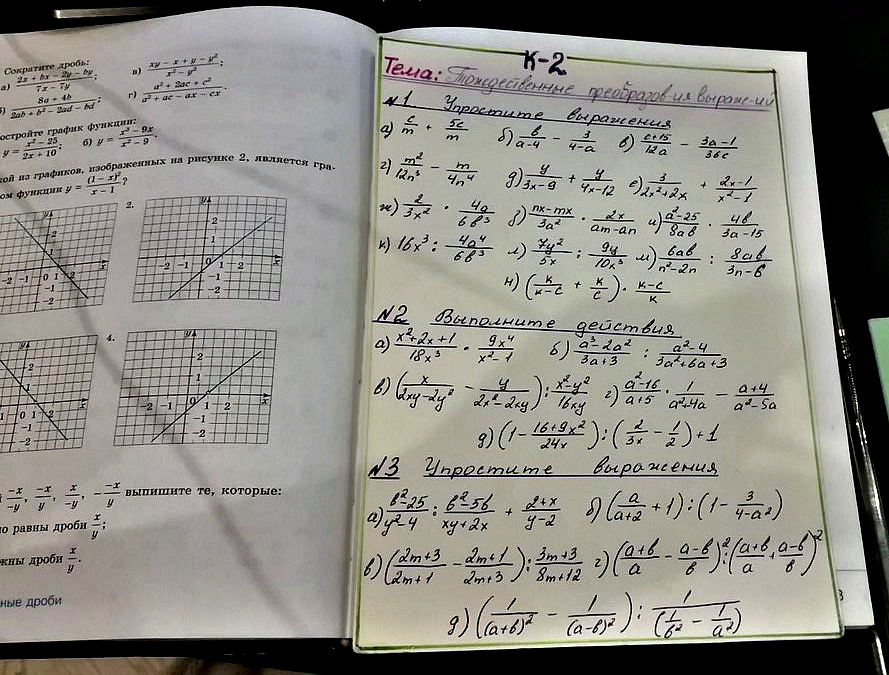 Сократите дробь:
а) (2x + bx − 2y − by)/(7x − 7y);
в) (xy − x + y − y²)/(x² − y²);
(8a + 4b)/(2ab + b² − 2ad − bd);
г) (a² + 2ac + c²)/(a² + ac − ax − cx).
остройте график функции:
y = (x² − 25)/(2x + 10); б) y = (x³ − 9x)/(x² − 9).
кой из графиков, изображенных на рисунке 2, является гра-
ом функции y = (1 − x)²/(x − 1)?
y
2
1
−2 −1 0 1 2 x
−1
−2
2.
y
2
1
−2 −1 0 1 2 x
−1
−2
y
2
1
0 1 2 x
−1
−2
4.
y
2
1
−2 −1 0 1 2 x
−1
−2
−x/−y, −x/y, x/−y, −(−x)/y выпишите те, которые:
но равны дроби x/y;
жны дроби x/y.
ные дроби
К-2
Тема: Тождественные преобразов-ия выраже-ий
№1 Упростите выражения
а) c/m + 5c/m б) b/(a-4) − 3/(4-a) в) (c+15)/12a − (3a-1)/36c
г) m²/12n³ − m/4n⁴ д) y/(3x-9) + y/(4x-12) е) 3/(2x²+2x) + (2x-1)/(x²-1)
ж) 2/3x² · 4a/6b³ з) (nx-mx)/3a² · 2x/(am-an) и) (a²-25)/8ab · 4b/(3a-15)
к) 16x³ : 4a⁴/6b³ л) 7y²/5x : 9y/10x³ м) 6ab/(n²-2n) : 8ab/(3n-6)
н) (k/(k-c) + k/c) · (k-c)/k
№2 Выполните действия
а) (x²+2x+1)/18x³ · 9x⁴/(x²-1) б) (a³-2a²)/(3a+3) : (a²-4)/(3a²+6a+3)
в) (x/(2xy-2y²) − y/(2x²-2xy)) : (x²-y²)/16xy г) (a²-16)/(a+5) · 1/(a²+4a) − (a+4)/(a²-5a)
д) (1 − (16+9x²)/24x) : (2/3x − 1/2) + 1
№3 Упростите выражения
а) (b²-25)/(y²-4) : (b²-5b)/(xy+2x) + (2+x)/(y-2) б) (a/(a+2) + 1) : (1 − 3/(4-a²))
в) ((2m+3)/(2m+1) − (2m+1)/(2m+3)) : (3m+3)/(8m+12) г) ((a+b)/a − (a-b)/b)² : ((a+b)/a + (a-b)/b)²
д) (1/(a+b)² − 1/(a-b)²) : 1/(1/b² − 1/a²)